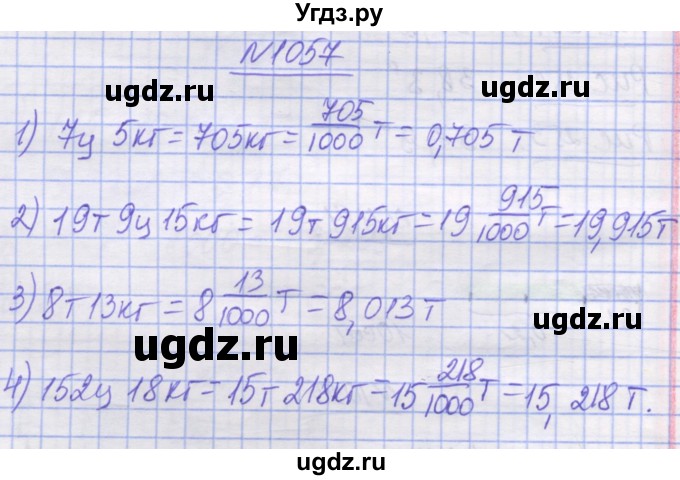 Угдз.ру
№1057
ugdz.ru ugdz.ru
1) 7ц 5кг = 705кг = 705/1000 т = 0,705 т
ugdz.ru ugdz.ru
2) 19т 9ц 15кг = 19т 915кг = 19 915/1000 т = 19,915т
3) 8т 13кг = 8 13/1000 т = 8,013 т
ugdz.ru ugdz.ru
4) 152ц 18кг = 15т 218кг = 15 218/1000 т = 15, 218 т.
ugdz.ru